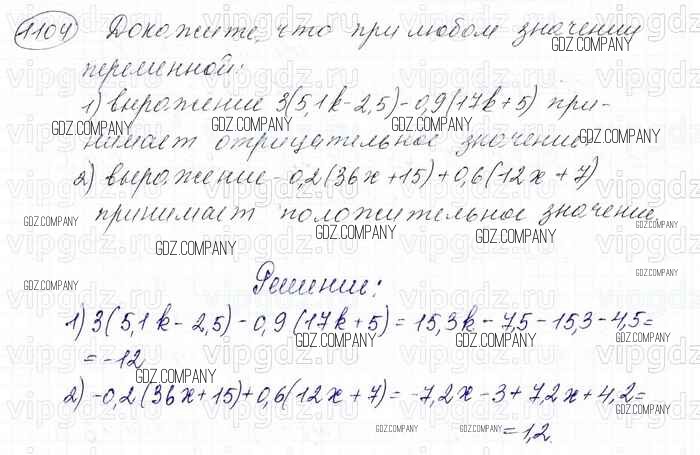 1104 Докажите, что при любом значении
переменной:
1) выражение 3(5,1k-2,5)-0,9(17k+5) при-
нимает отрицательное значение;
2) выражение -0,2(36x+15)+0,6(12x+7)
принимает положительное значение.
Решение:
1) 3(5,1k-2,5)-0,9(17k+5)=15,3k-7,5-15,3-4,5=
=-12
2) -0,2(36x+15)+0,6(12x+7)=-7,2x-3+7,2x+4,2=
=1,2.
GDZ.COMPANY
vipgdz.ru